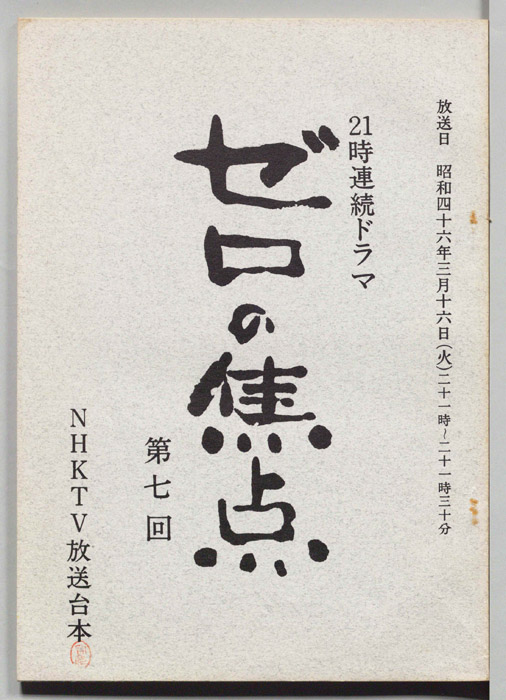 放送日 昭和四十六年三月十六日(火)二十一時~二十一時三十分
21時連続ドラマ
ゼロの焦点
第七回
NHKTV放送台本